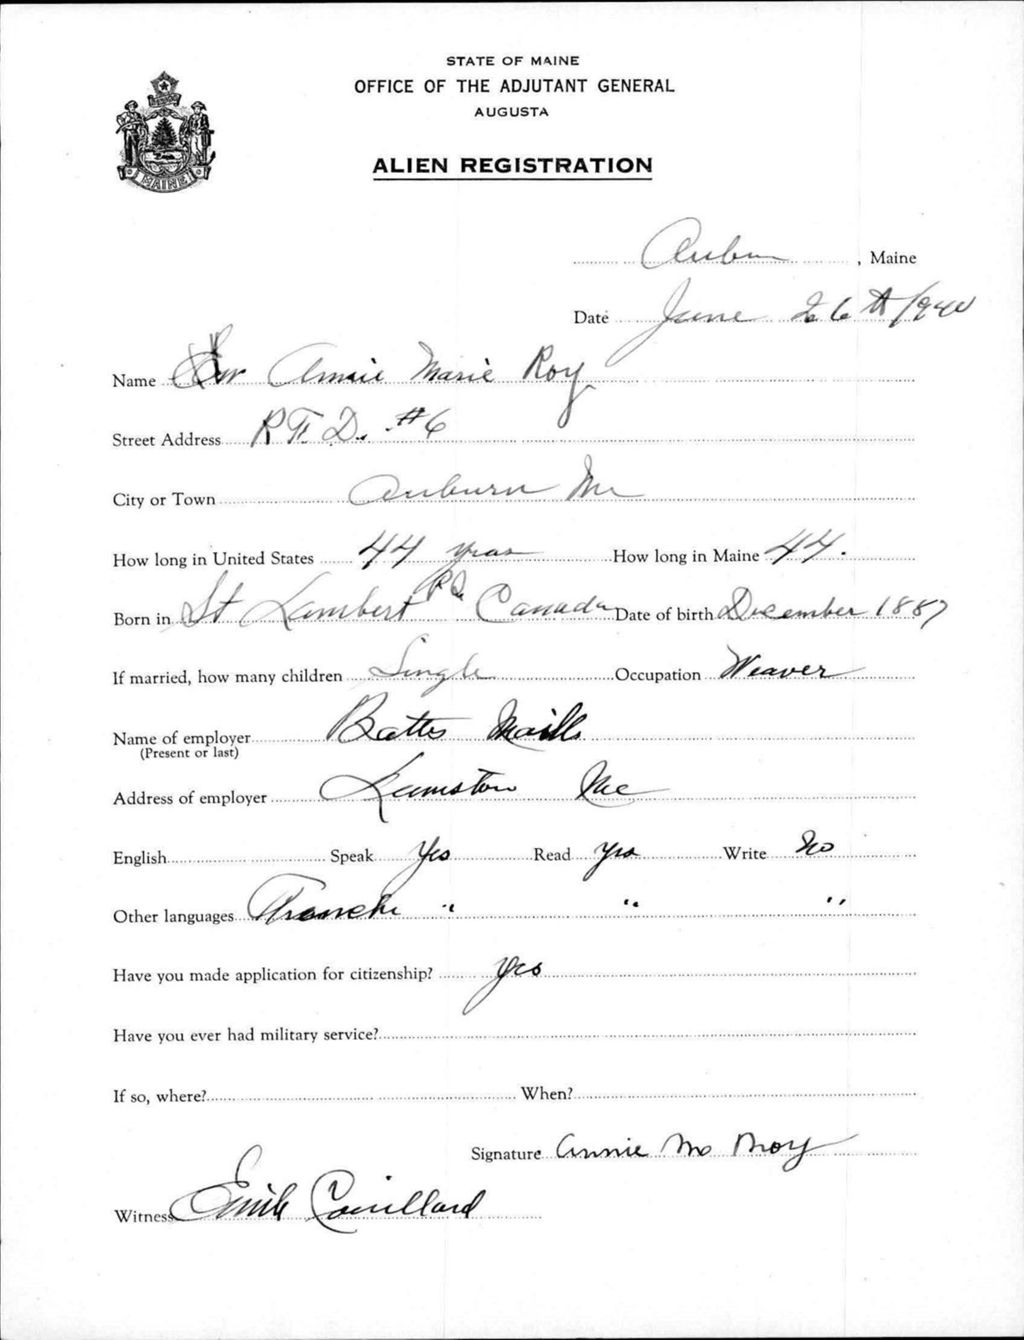 STATE OF MAINE
OFFICE OF THE ADJUTANT GENERAL
AUGUSTA
MAINE
ALIEN REGISTRATION
Auburn, Maine
Date June 26th 1940
Name Annie Marie Roy
Street Address R.F.D. #6
City or Town Auburn Me
How long in United States 44 years How long in Maine 44.
Born in St Lambert P.Q. Canada Date of birth December 1887
If married, how many children Single Occupation Weaver
Name of employer Battes Maills
(Present or last)
Address of employer Lewiston Me
English Speak Yes Read Yes Write No
Other languages Franche " " "
Have you made application for citizenship? Yes
Have you ever had military service?
If so, where? When?
Signature Annie M Roy
Witness Emile Couillard